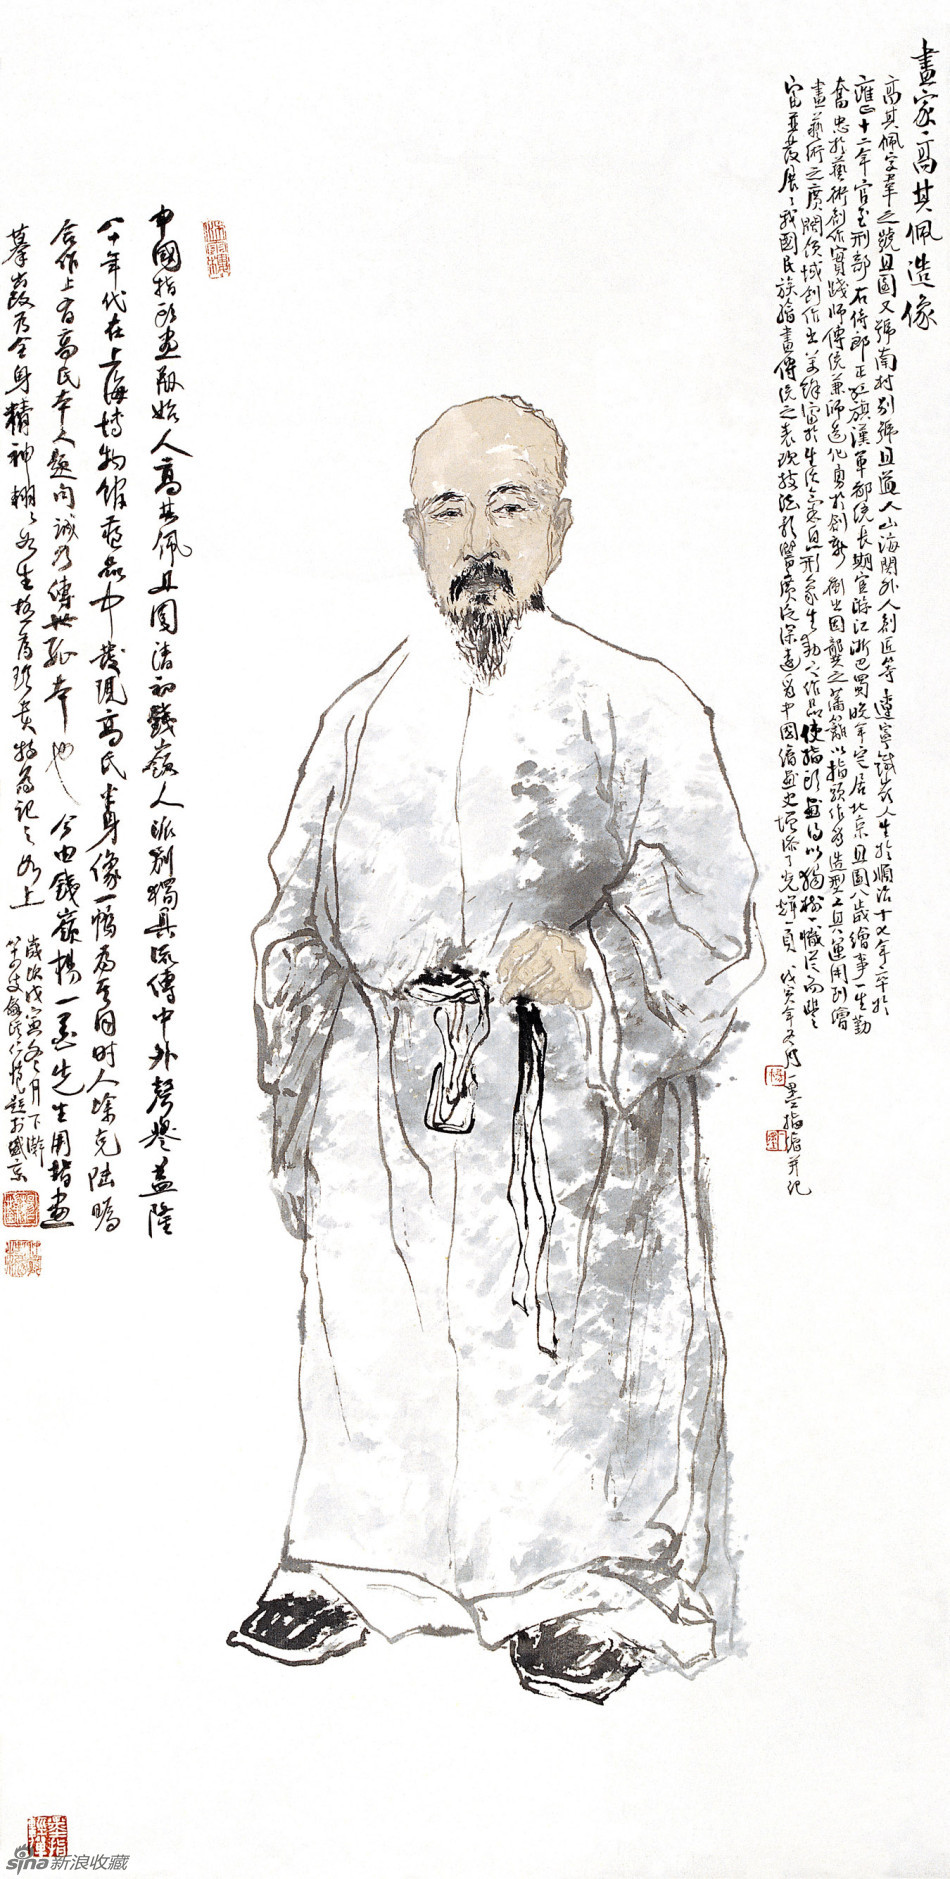 畫家高其佩造像
高其佩字韋之號且園又號南村別號且道人山海關外人創匠等遼寧鐵嶺人生於順治十七年卒於
雍正十二年官至刑部右侍郎正紅旗漢軍都統長期宦游江浙巴蜀晚年定居北京且園八歲繪事一生勤
奮忠於藝術創作實踐師傳統兼師造化勇於創新衝出因襲之藩籬以指頭作為造型工具運用到繪
畫藝術之廣闊領域創作出富於生活氣息形象生動之作品使指頭畫得以獨樹一幟從而豐
富並發展了我國民族繪畫傳統之表現技法影響廣泛深遠為中國繪畫史增添了光輝一頁 戊寅年冬月一墨指繪并記
中國指頭畫開始人高其佩且園清初鐵嶺人派別獨具流傳中外聲譽益隆
八十年代在上海博物館藏品中發現高氏半身像一幀為其同時人涂克陸㬙
合作上有高氏本人題句誠為傳世孤本也 今由鐵嶺楊一墨先生用指畫
摹敬為全身精神栩栩如生極為珍貴特為記之如上
歲次戊寅冬月下澣
題於盛京
sina新浪收藏